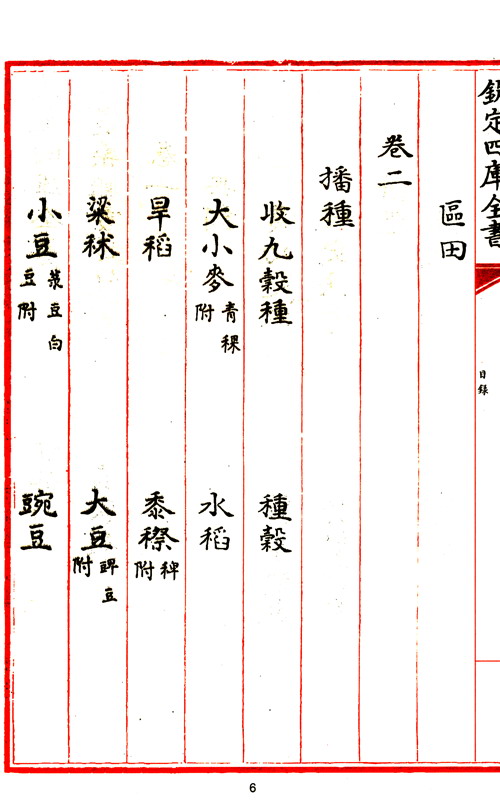 欽定四庫全書
目錄
區田
卷二
播種
收九穀種 種穀
大小麥青稞附 水稻
旱稻 黍穄稗附
粱秫 大豆豍豆附
小豆菉豆白豆附 豌豆
6